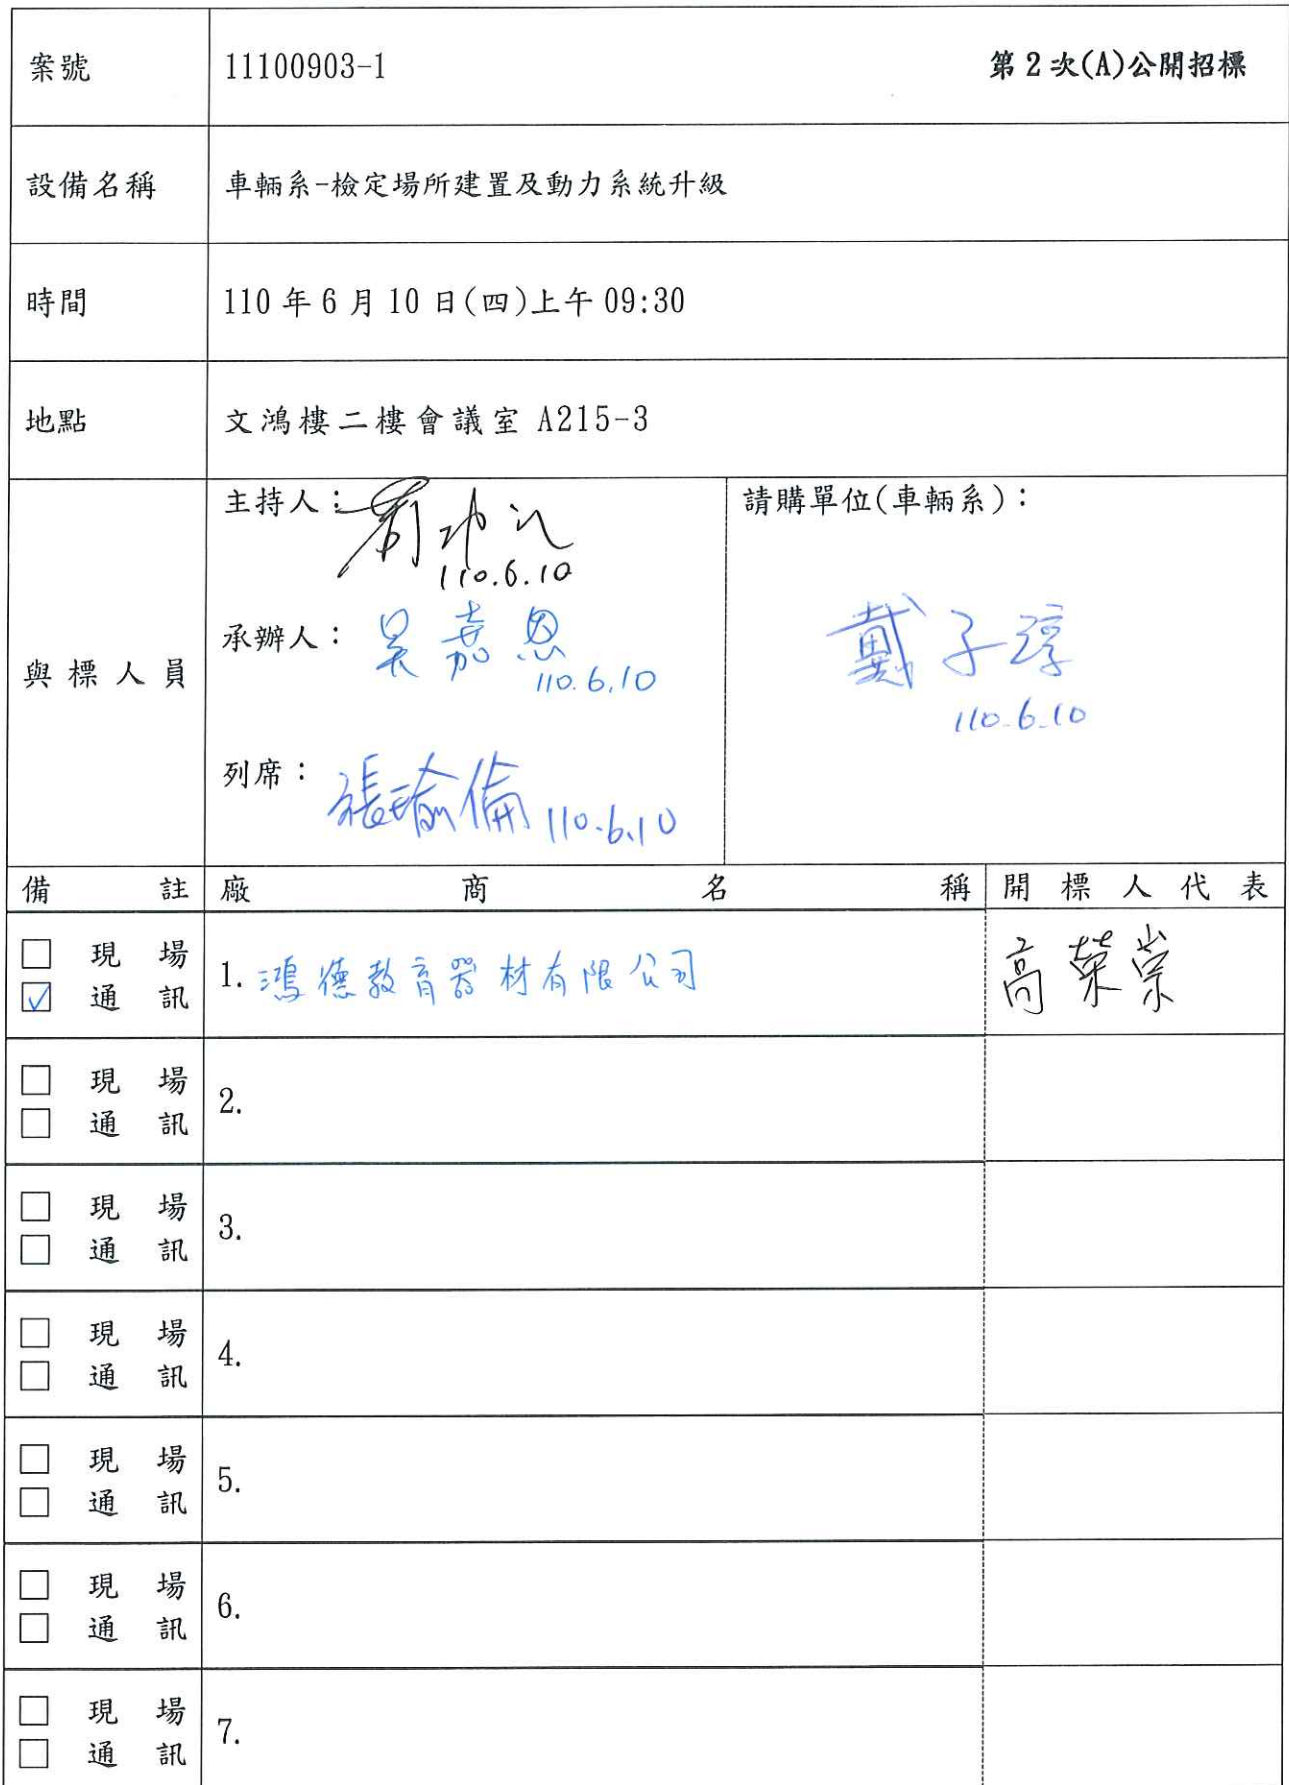 案號 11100903-1 第2次(A)公開招標
設備名稱 車輛系-檢定場所建置及動力系統升級
時間 110年6月10日(四)上午09:30
地點 文鴻樓二樓會議室 A215-3
與標人員
主持人：
110.6.10
承辦人：吳嘉恩
110.6.10
列席：張瑜倫 110.6.10
請購單位(車輛系)：
戴子淳
110.6.10
備註 廠商名稱 開標人代表
□ 現場
☑ 通訊
1. 鴻德教育器材有限公司
高榮崇
□ 現場
□ 通訊
2.
□ 現場
□ 通訊
3.
□ 現場
□ 通訊
4.
□ 現場
□ 通訊
5.
□ 現場
□ 通訊
6.
□ 現場
□ 通訊
7.